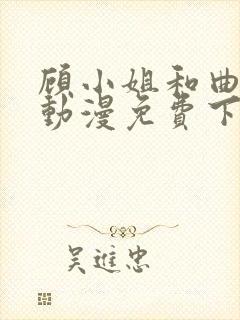 顾小姐和曲
動漫免費下
吴進忠